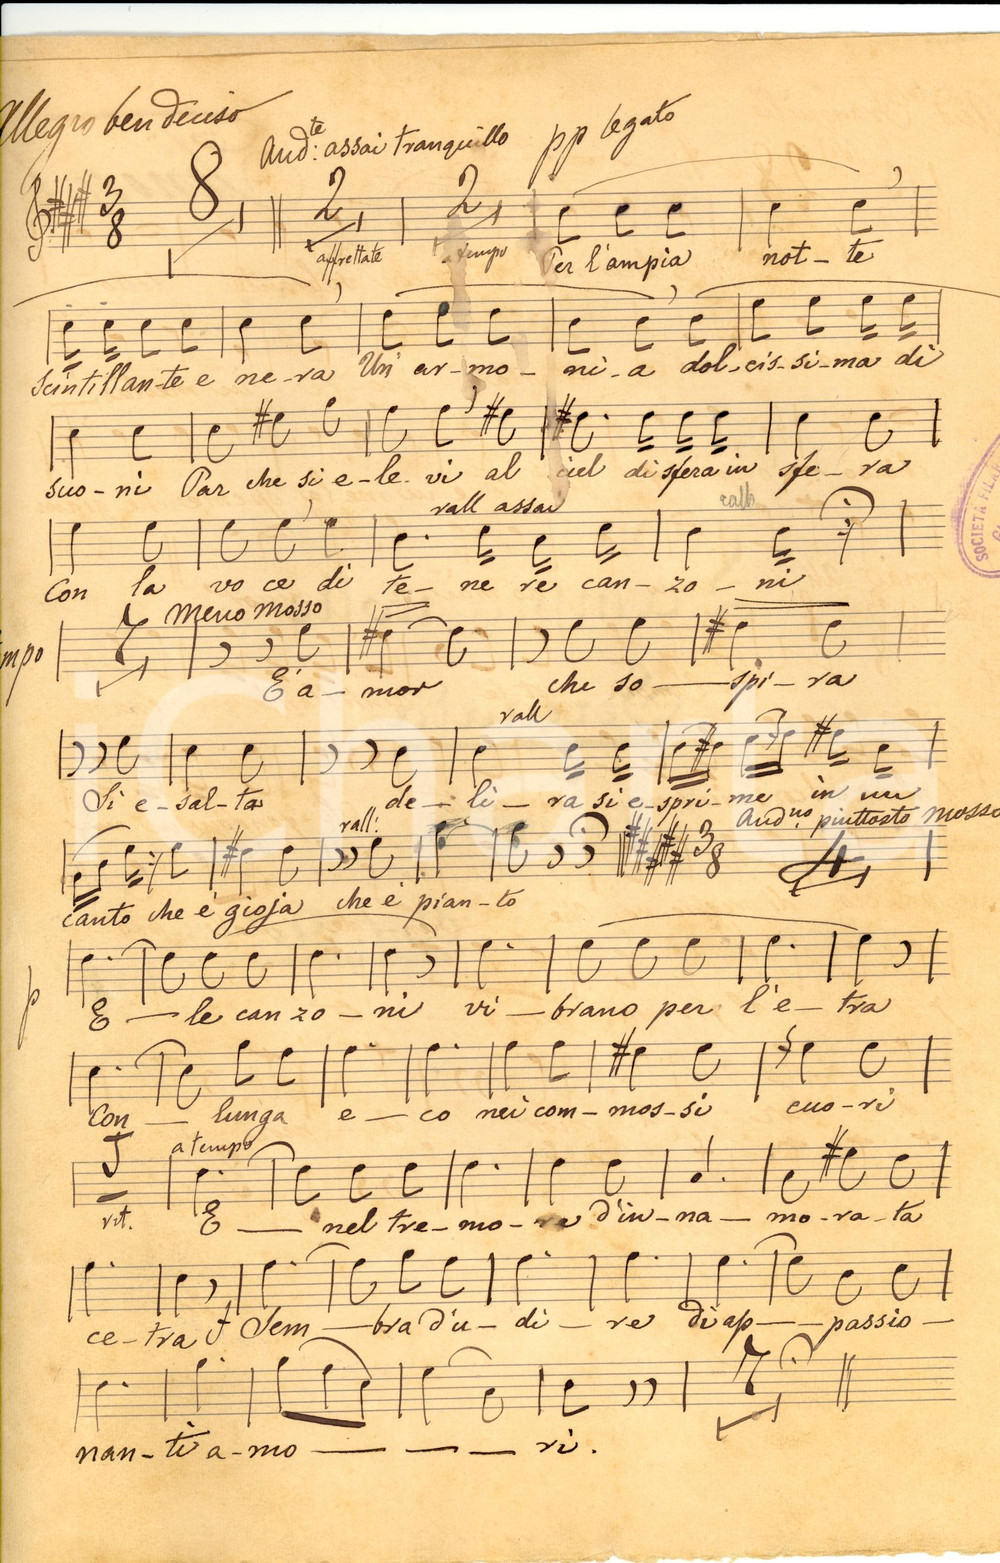 Allegro ben deciso
And.te assai tranquillo pp legato
3/8 8 2 2
affrettate a tempo
Per l'ampia not-te
scintillan-te e ne-ra Un ar-mo-ni-a dol-cis-si-ma di
suo-ni Par che si e-le-vi al ciel di sfera in sfe-ra
rall assai rall
Con la vo ce di te-ne re can-zo-ni
Meno mosso
mpo 7
E' a-mor che so-spi-ra
rall
Si e-sal-ta de-li-ra si e-spri-me in un
rall: And.no piuttosto mosso
3/8 4
canto che é gioja che é pian-to
p
E-le canzo-ni vi-brano per l'e-tra
Con-lunga e-co nei com-mos-si cuo-ri
a tempo
rit. E-nel tre-mo-re d'in-na-mo-ra-ta
ce-tra Sem-bra d'u-di-re di ap-passio-
7
nan-ti a-mo-ri.
SOCIETÀ FILA